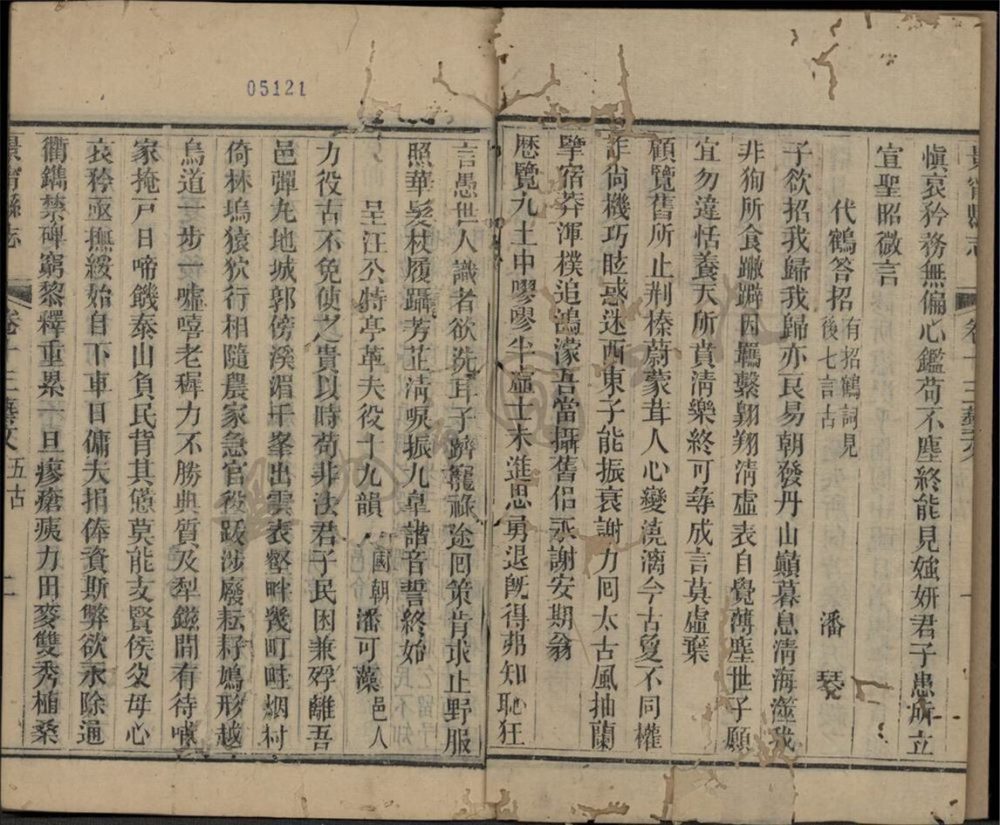 景寧縣志 卷十三藝文
慎哀矜務無偏心鑑苟不塵終能見媸妍君子患所立
宣聖昭微言
代鶴答招 有招鶴詞見後七言古 潘琴
子欲招我歸我歸亦良易朝發丹山巔暮息清海澨我
非狗所食蹴躃因羈繫翱翔清虛表自覺薄塵世子願
宜勿違恬養天所賁清樂終可尋成言莫虛棄
顧覽舊所止荆榛蔚蒙茸人心變澆漓今古夐不同權
詐尚機巧眩惑迷西東子能振衰謝力囘太古風抽蘭
擥宿莽渾樸追鴻濛吾當攝舊侶永謝安期翁
歴覽九土中嘐嘐半盧士未進思勇退旣得弗知恥狂
言愚世人識者欲洗耳子躋寵祿途囘策肯求止野服
照華髮杖履躡芳芷淸唳振九皐諧音誓終始
呈汪公特亭革夫役十九韻 國朝潘可藻邑人
力役古不免使之貴以時苟非法君子民困兼殍離吾
邑彈丸地城郭傍溪湄千峯出雲表壑畔幾町畦烟村
倚林塢猿狖行相隨農家急官役跋涉廢耘耔鳩形越
鳥道一步一噓嘻老穉力不勝典質及犁鎡間有待哺
家掩戸日啼饑泰山負民背其憊莫能支賢侯父母心
哀矜亟撫綏始自下車日傭夫捐俸資斯弊欲永除通
衢鐫禁碑窮黎釋重累一旦瘳瘡痍力田麥雙秀植桑
景寧縣志 卷十三藝文 五古 二
05121